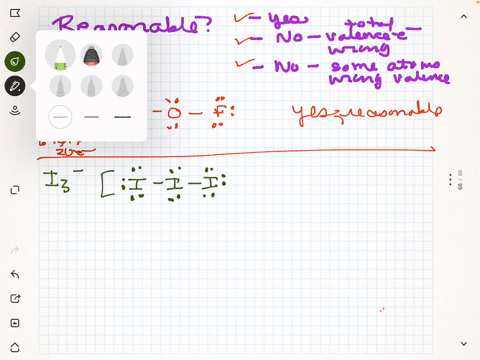 Reasonable?
- yes
- No - total valence e- wrong
- No - some atoms wrong valence
- O - F:
yes = reasonable
20e-
I3- [:I - I - I: